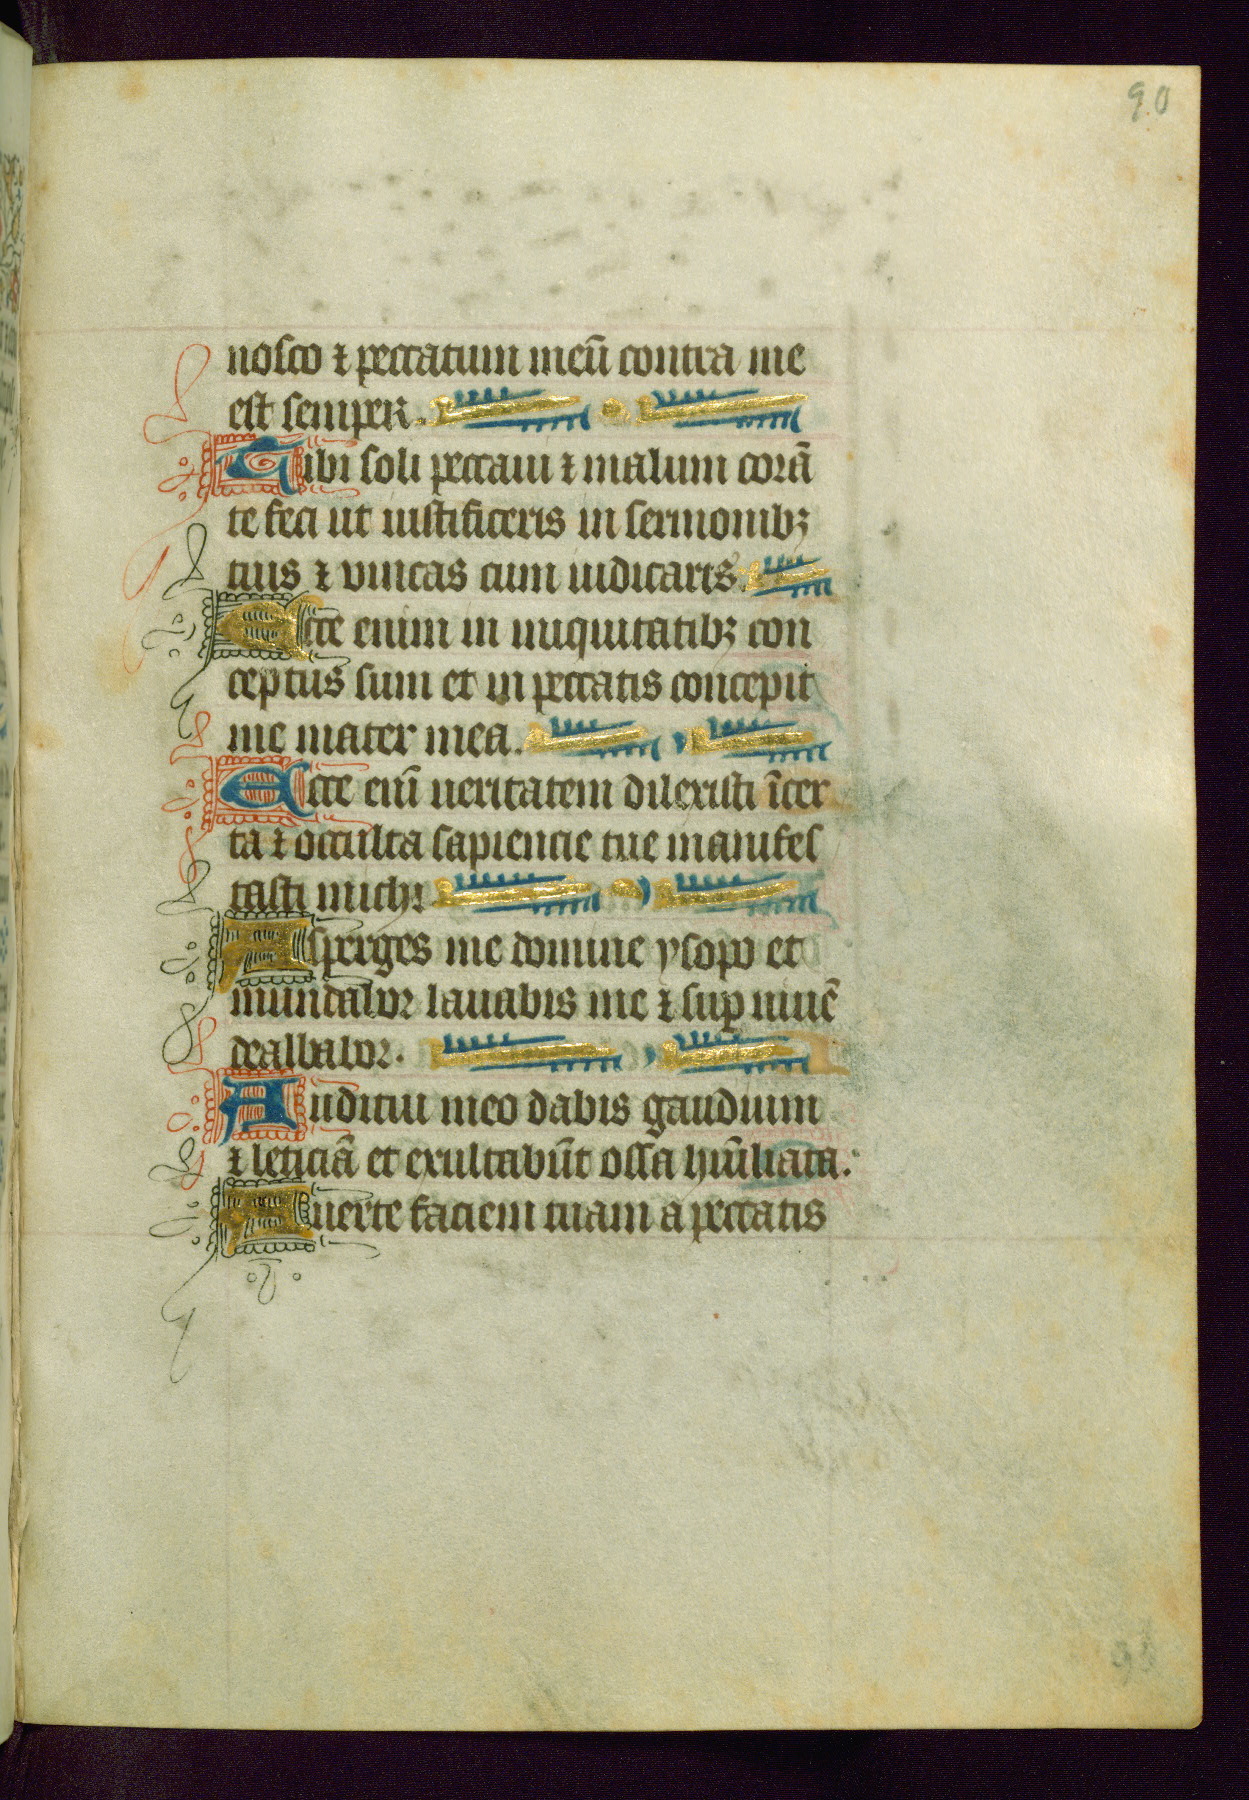 90
nosco ⁊ peccatum meū contra me
est semper.
Tibi soli peccaui ⁊ malum corā
te feci ut iustificeris in sermonibꝫ
tuis ⁊ vincas cum iudicaris.
Ecce enim in iniquitatibꝫ con
ceptus sum et in peccatis concepit
me mater mea.
Ecce eniī ueritatem dilexisti īcer
ta ⁊ occulta sapiencie tue manifes
tasti michi
Asperges me domine ysopo et
mundabor lauabis me ⁊ suꝑ niuē
dealbabor.
Auditui meo dabis gaudium
⁊ leticiā et exultabūt ossa hūiliata.
Auerte faciem tuam a peccatis